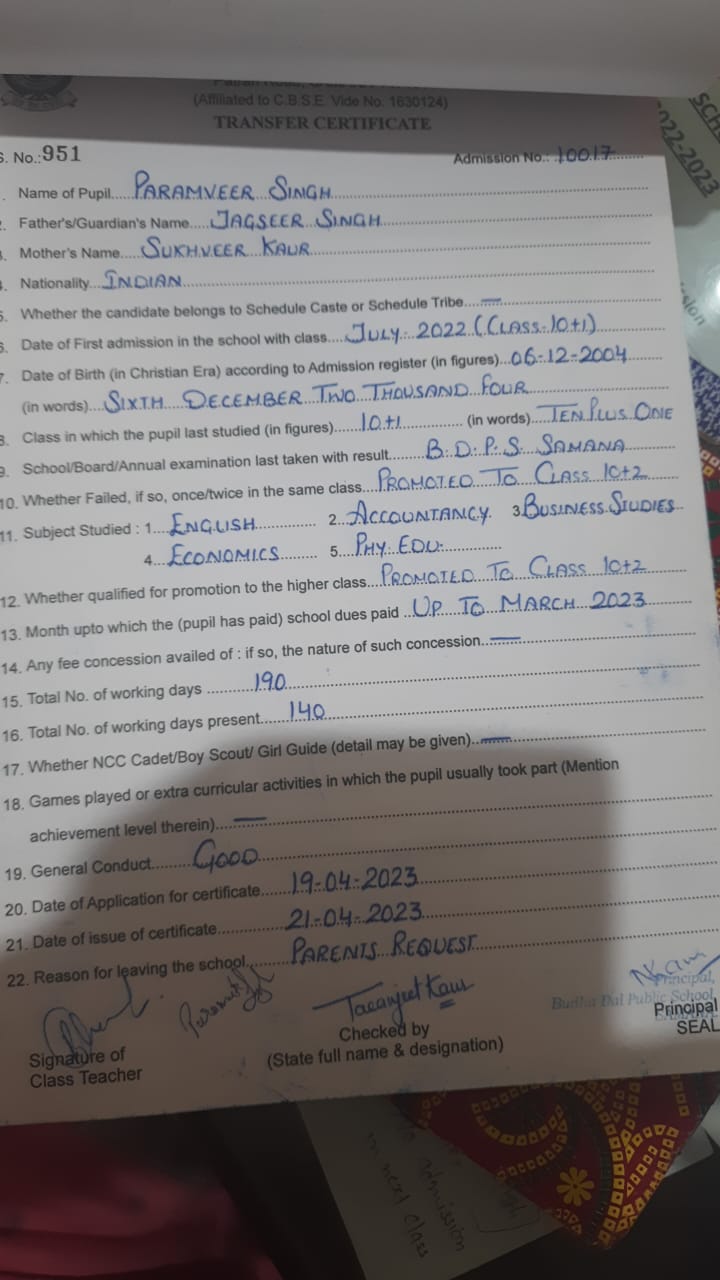 (Affiliated to C.B.S.E. Vide No. 1630124)
TRANSFER CERTIFICATE
S. No.: 951 Admission No.: 10017
. Name of Pupil....PARAMVEER SINGH
2. Father's/Guardian's Name.....JAGSEER SINGH
3. Mother's Name.....SUKHVEER KAUR
4. Nationality...INDIAN
5. Whether the candidate belongs to Schedule Caste or Schedule Tribe....—
6. Date of First admission in the school with class....JULY. 2022 (CLASS-10+1)
7. Date of Birth (in Christian Era) according to Admission register (in figures)...06-12-2004
(in words)...SIXTH DECEMBER TWO THOUSAND FOUR
8. Class in which the pupil last studied (in figures).....10+1 (in words)...TEN PLUS ONE
9. School/Board/Annual examination last taken with result.......B.D.P.S. SAMANA
10. Whether Failed, if so, once/twice in the same class...PROMOTED TO CLASS 10+2
11. Subject Studied : 1....ENGLISH 2...ACCOUNTANCY. 3.BUSINESS STUDIES
4....ECONOMICS 5....PHY. EDU.
12. Whether qualified for promotion to the higher class...PROMOTED TO CLASS 10+2
13. Month upto which the (pupil has paid) school dues paid ...UP TO MARCH 2023
14. Any fee concession availed of : if so, the nature of such concession...—
15. Total No. of working days ..........190
16. Total No. of working days present......140
17. Whether NCC Cadet/Boy Scout/ Girl Guide (detail may be given)..—
18. Games played or extra curricular activities in which the pupil usually took part (Mention
achievement level therein)....—
19. General Conduct.........GOOD
20. Date of Application for certificate......19-04-2023
21. Date of issue of certificate.............21-04-2023
22. Reason for leaving the school..........PARENTS REQUEST
Kaur
Principal,
Budha Dal Public School,
Signature of
Class Teacher
Checked by
(State full name & designation)
Principal
SEAL
2022-2023
admission
in next class